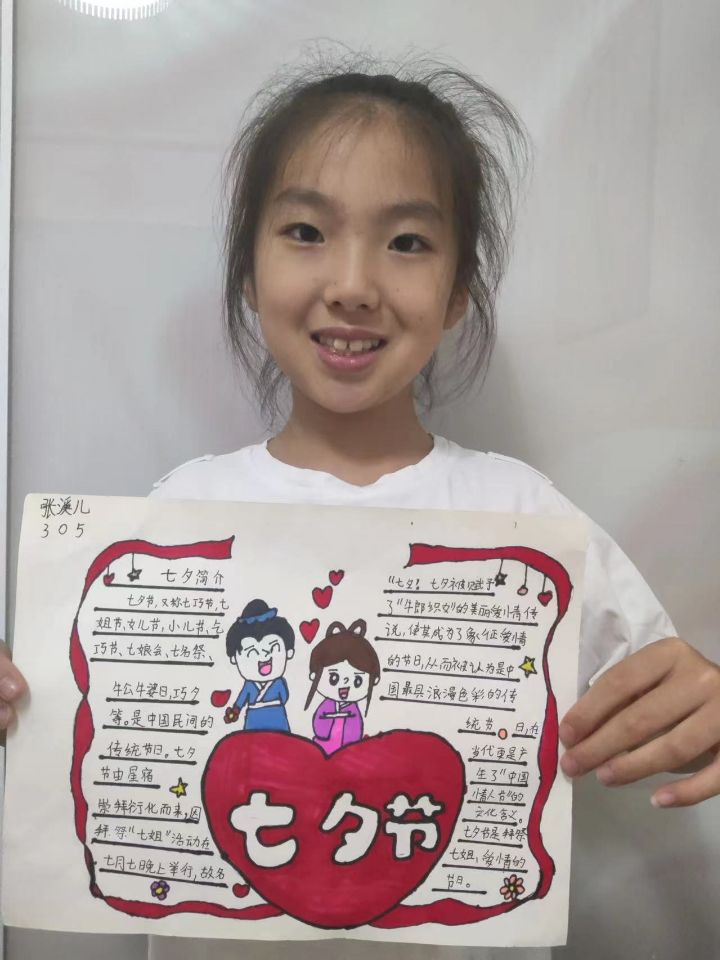 张溪儿
305
七夕简介
七夕节,又称七巧节、七
姐节、女儿节,小儿节、乞
巧节、七娘会、七夕祭、
牛公牛婆日,巧夕
等。是中国民间的
传统节日。七夕
节由星宿
崇拜衍化而来,因
拜祭“七姐”活动在
七月七晚上举行,故名
“七夕!七夕被赋予
了“牛郎织女”的美丽爱情传
说,使其成为了象征爱情
的节日,从而被认为是中
国最具浪漫色彩的传
统节日,在
当代更是产
生了“中国
情人节”的
文化含义。
七夕节是拜祭
七姐、爱情的
节日。
七夕节